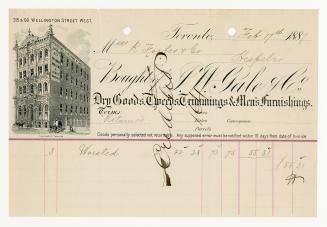 38 & 56 WELLINGTON STREET WEST.
Toronto, Feb 17th 1887
M R. Forbes & Co
Hespeler
Bought of J. W. Gale & Co.
Dry Goods, Tweeds, Trimmings & Men's Furnishings.
Terms
Returned
Credited
Goods personally selected not returnable. Any supposed error must be notified within 10 days from date of invoice.
3 Worsted 22 23 73 75 55 31
55 31